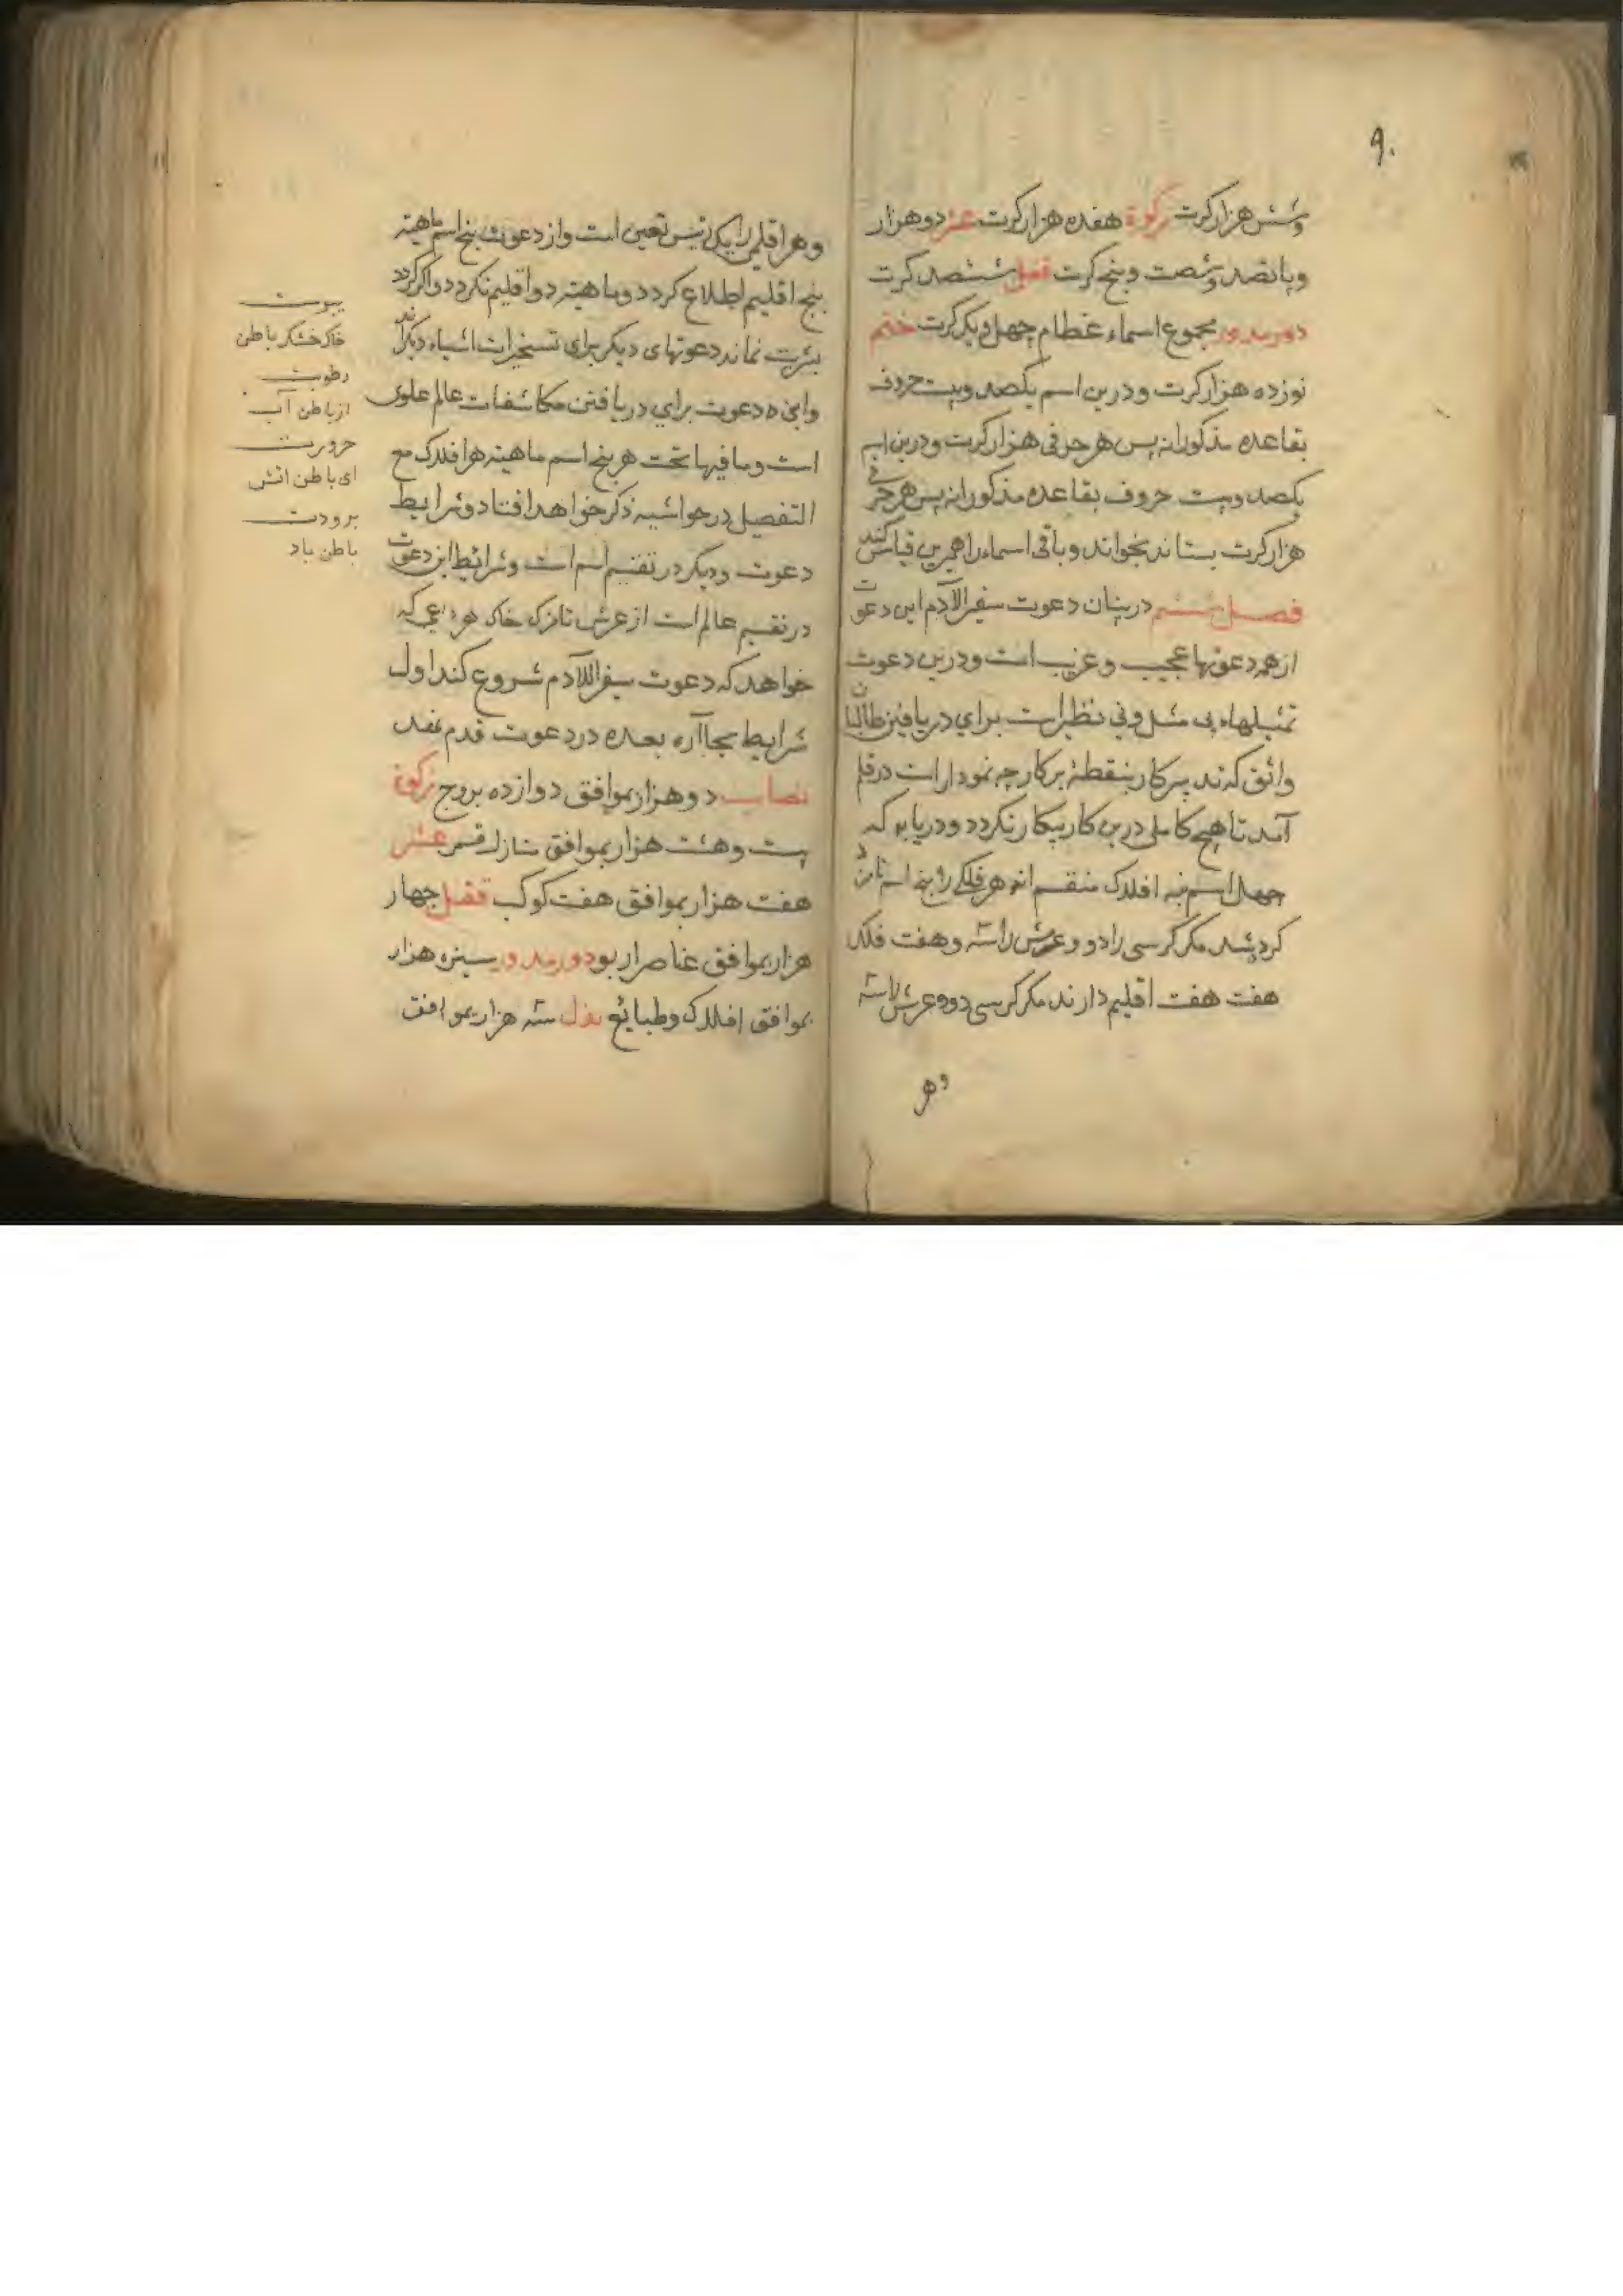 ۹۰
وشش هزار کرت زکوة هفده هزار کرت عشر دو هزار
وپانصد وشصت وپنج کرت قفل ششصد کرت
دور مدور مجموع اسماء عظام چهل ویک کرت ختم
نوزده هزار کرت ودرین اسم یکصد وبیست حروف
بقاعده مذکورانه پس هر حرفی هزار کرت ودرین اسم
یکصد وبیست حروف بقاعده مذکورانه پس هر حرفی
هزار کرت بستاند بخواند وباقی اسماء را همرین قیاس کند
فصل ششم در بیان دعوت سفر الآدم این دعوت
از همه دعوتها عجیب وغریب است ودرین دعوت
تمثیلهاء بی مثل وبی نظیر است برای دریافتن طالبان
واثق که ند پرکار بنقطهٔ پرکار چه نمودار است در قلم
آمد تا هیچ کاملی درین کار بیکار نکردد ودریابد که
چهل اسم نه افلاک منقسم اند هر فلکی را پنج اسم نامزد
کرد شد مکر کرسی را دو وعرش را سه وهفت فلک
هفت هفت اقلیم دارند مکر کرسی دو وعرش را سه
وهر
وهر اقلیمی را یک رئیس تعین است واز دعوت پنج اسم ماهیته
پنج اقلیم اطلاع کردد وماهیته دو اقلیم نکردد واکر کردد
بشریت نماند دعوتهای دیکر برای تسخیرات اشیاء دیکراند
واین ده دعوت برای دریافتن مکاشفات عالم علوی
است وما فیها تحت هر پنج اسم ماهیته هر افلاک مع
التفصیل در حواشیه ذکر خواهد افتاد وشرایط
دعوت ودیکر در تقسیم اسم است وشرائط این دعوت
در تقسیم عالم است از عرش تا زک خاک هر داعی که
خواهد که دعوت سفر اللآدم شروع کند اول
شرایط بجا آره بعده در دعوت قدم نهد
نصاب دو هزار بموافق دوازده بروج زکوة
بیست وهشت هزار بموافق منازل قمر عشر
هفت هزار بموافق هفت کوکب قفل چهار
هزار بموافق عناصر اربو دور مدور سیزه هزار
بموافق افلاک وطبائع بذل سه هزار بموافق
یبوست
خاک خشکر باطن
رطوبت
از باطن آب
حرورت
ای باطن اتش
برودت
باطن باد